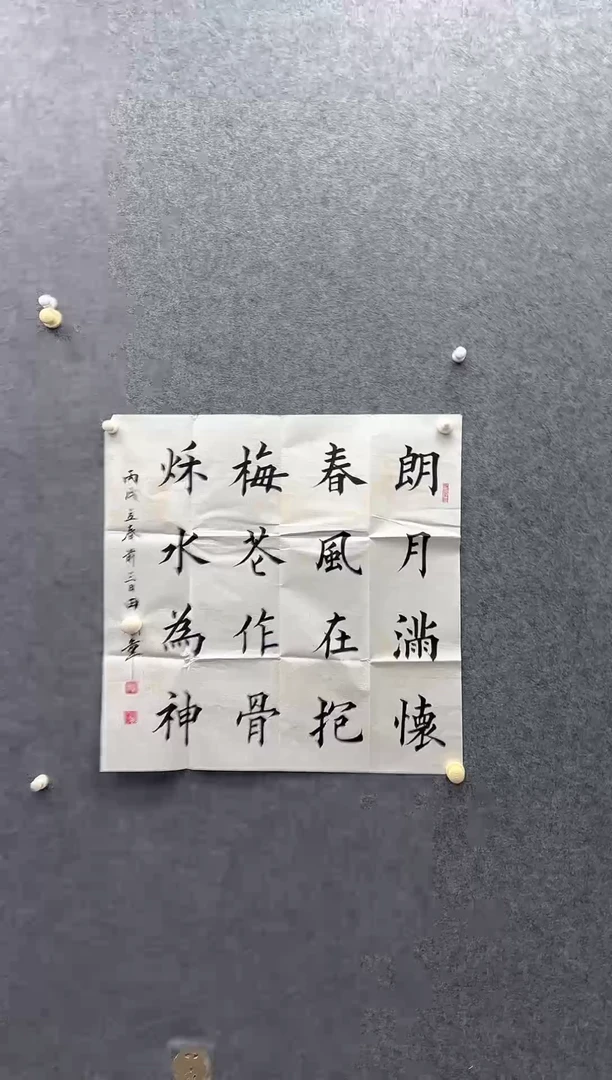 朗月满懷
春風在抱
梅花作骨
秌水為神
丙戌立春前三日